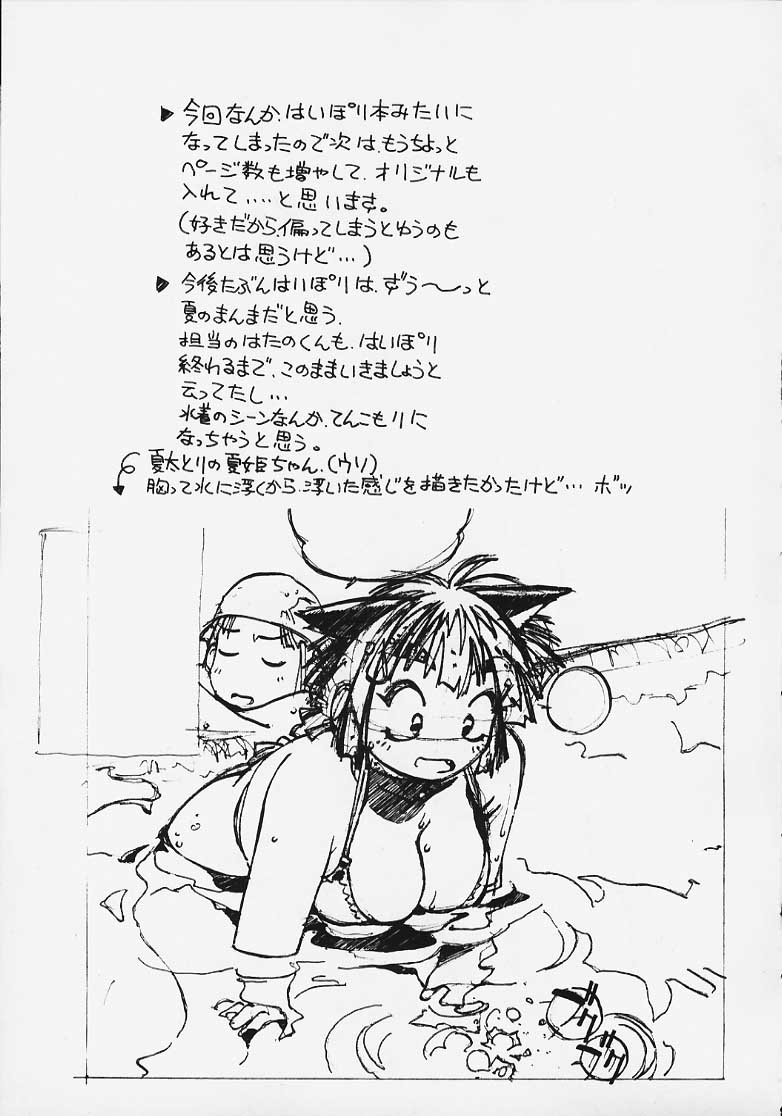 ▶今回なんか、はいぽり本みたいに
なってしまったので次は、もうちょっと
ページ数も増やして、オリジナルも
入れて‥‥と思います。
(好きだから、偏ってしまうとゆうのも
あるとは思うけど…)
▶今後たぶんはいぽりは、ずう〜っと
夏のまんまだと思う、
担当のはたのくんも、はいぽり
終わるまで、このままいきましょうと
云ってたし…
水着のシーンなんか、てんこもりに
なっちゃうと思う。
夏太とりの夏姫ちゃん、(ウソ)
胸って水に浮くから、浮いた感じを描きたかったけど… ボッ
ザザ
ザザ